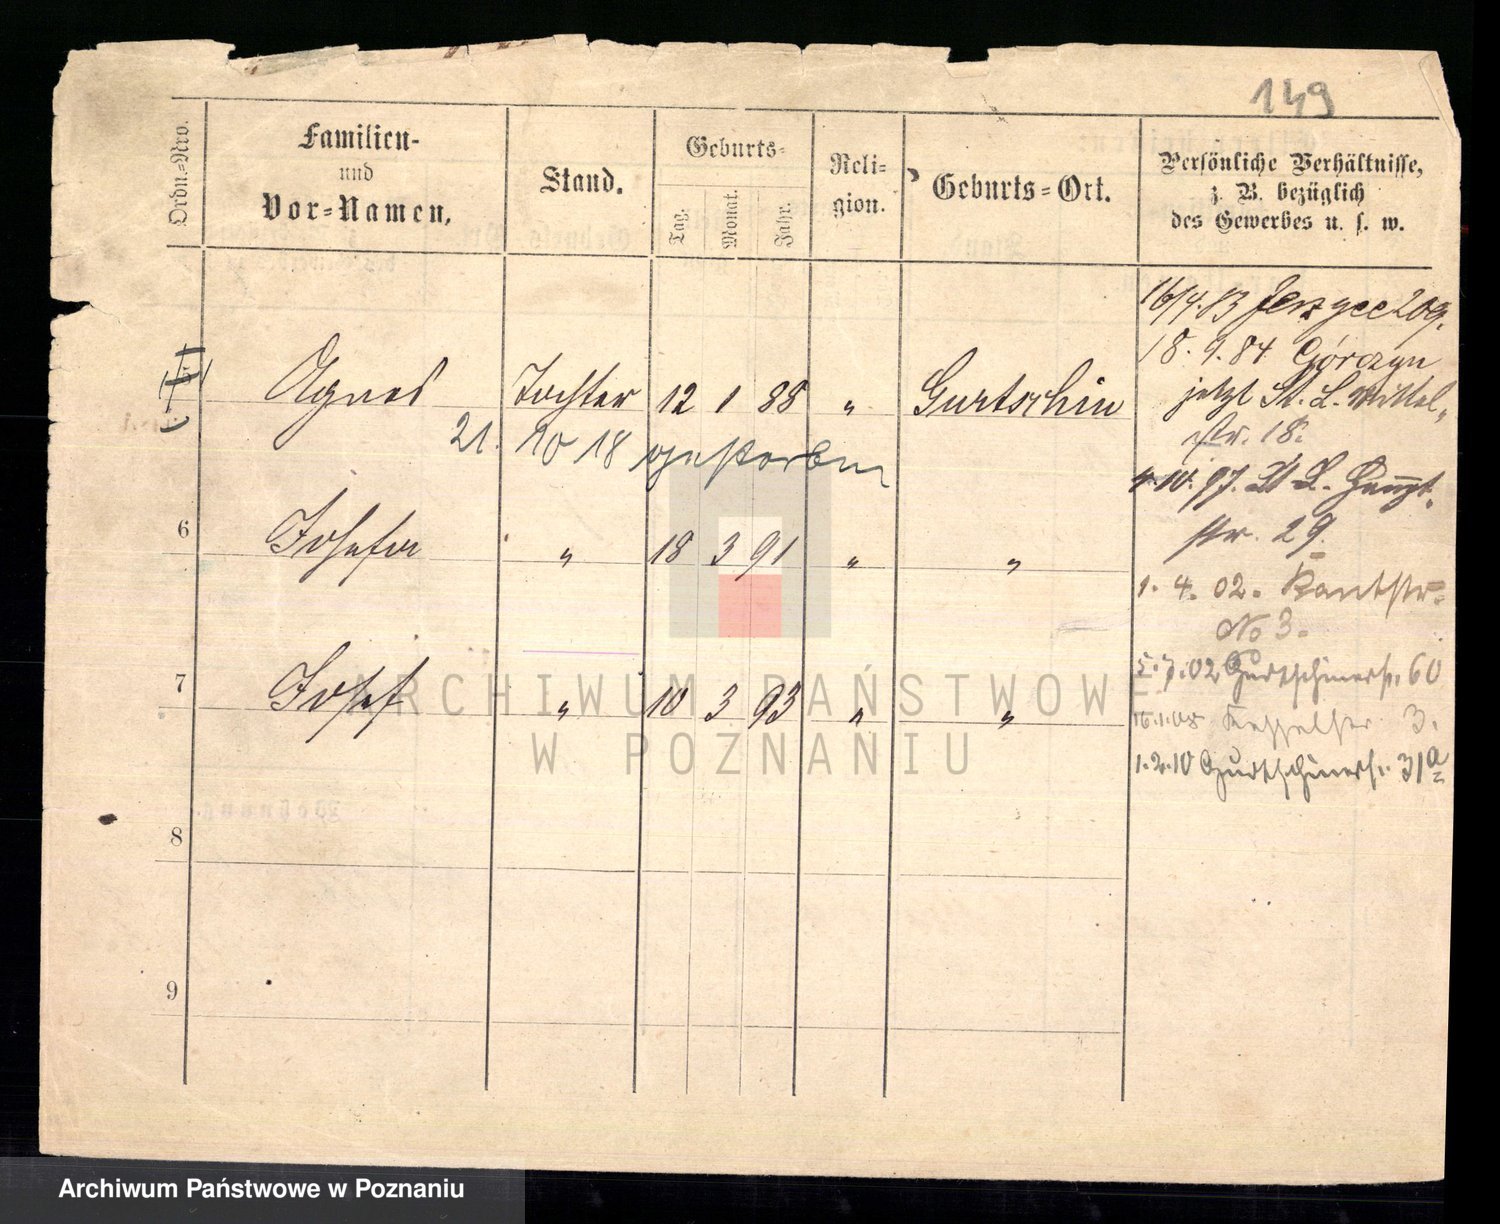 149
Ordn.-Nro.
Familien-
und
Vor-Namen.
Stand.
Geburts-
Tag.
Monat.
Jahr.
Reli-
gion.
Geburts-Ort.
Persönliche Verhältnisse,
z. B. bezüglich
des Gewerbes u. s. w.
16/4.83
18. 9. 84 Górczyn
jetzt St. L. Mittel-
str. 18.
5 Agnes Tochter 12 1 88 " Gurtschin
21. 10 18 gestorben
4.10.97. St L. Haupt-
str. 29.
6 Josefa " 18 3 91 " "
1. 4. 02. Kantstr.
No 3.
7 Josef " 10 3 93 " "
5.7.02 Gurtschinerstr. 60
16.1.08 Kesselstr. 3.
1.2.10 Gurtschinerstr. 31a
8
9
ARCHIWUM PAŃSTWOWE
W POZNANIU
Archiwum Państwowe w Poznaniu